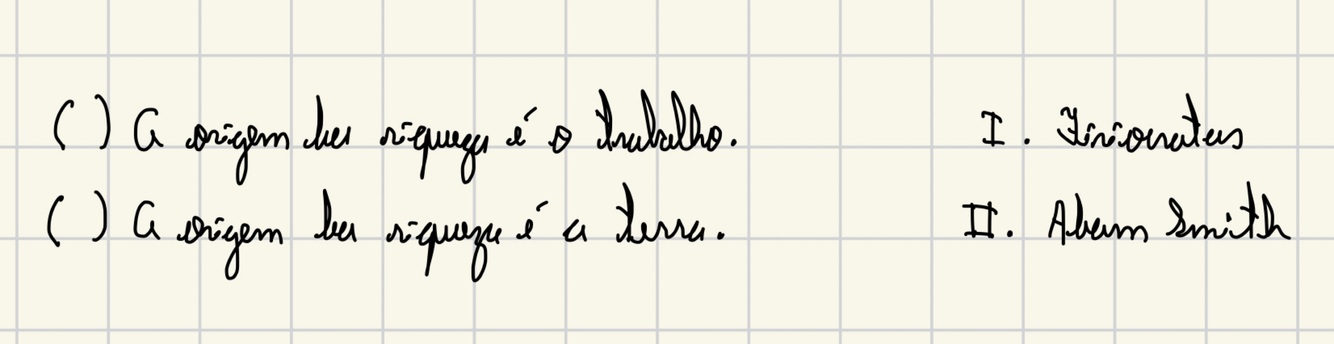 ( ) A origem da riqueza é o trabalho.
( ) A origem da riqueza é a terra.
I. Fisiocratas
II. Adam Smith